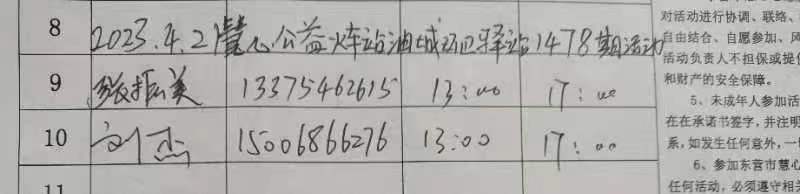 8 2023.4.2慧心公益火车站油城环卫驿站1478期活动
9 振美 13375462615 13:00 17:00
10 刘杰 15006866276 13:00 17:00
11
对活动进行协调、联络、
自由结合、自愿参加、风
活动负责人不担保或提供
和财产的安全保障。
5、未成年人参加活
在在承诺书签字，并注明
系，如发生任何意外，一
6、参加东营市慧心
任何活动，必须遵守相关